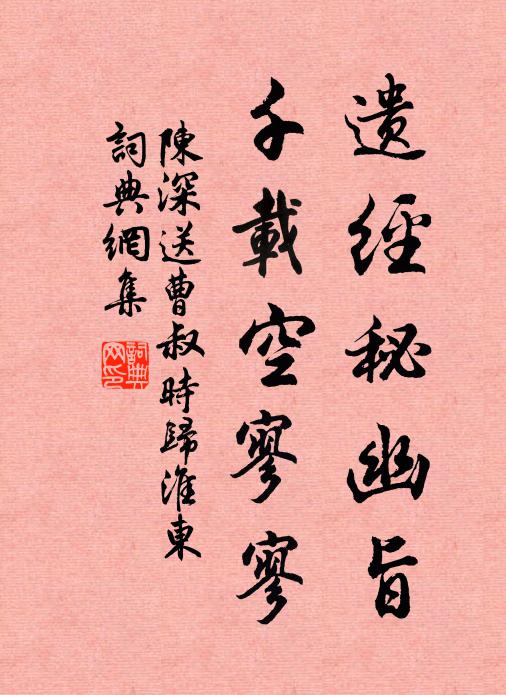 遺經秘幽旨
千載空寥寥
陳深送曹叔時歸淮東
詞典網集
詞典網印